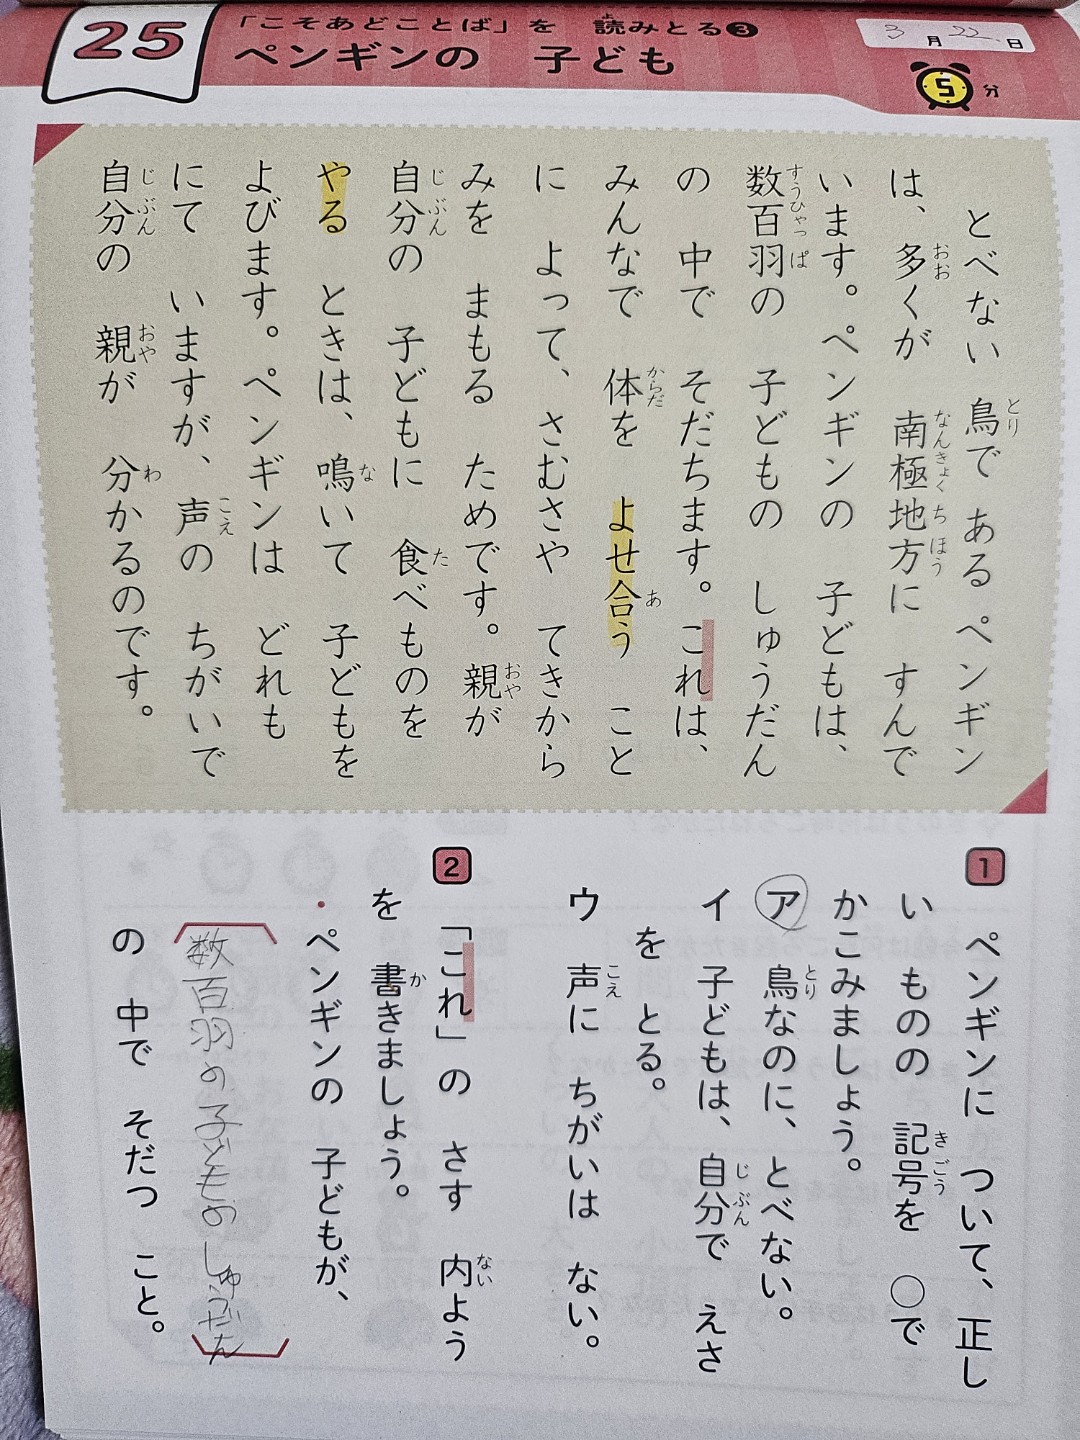 25
「こそあどことば」を 読みとる❸
ペンギンの 子ども
3月22日
5分
とべない 鳥で ある ペンギン
は、多くが 南極地方に すんで
います。ペンギンの 子どもは、
数百羽の 子どもの しゅうだん
の 中で そだちます。これは、
みんなで 体を よせ合う こと
に よって、さむさや てきから
みを まもる ためです。親が
自分の 子どもに 食べものを
やる ときは、鳴いて 子どもを
よびます。ペンギンは どれも
にて いますが、声の ちがいで
自分の 親が 分かるのです。
1 ペンギンに ついて、正し
い ものの 記号を ○で
かこみましょう。
ア 鳥なのに、とべない。
イ 子どもは、自分で えさ
を とる。
ウ 声に ちがいは ない。
2 「これ」の さす 内よう
を 書きましょう。
・ペンギンの 子どもが、
数百羽の子どものしゅうだん
の 中で そだつ こと。